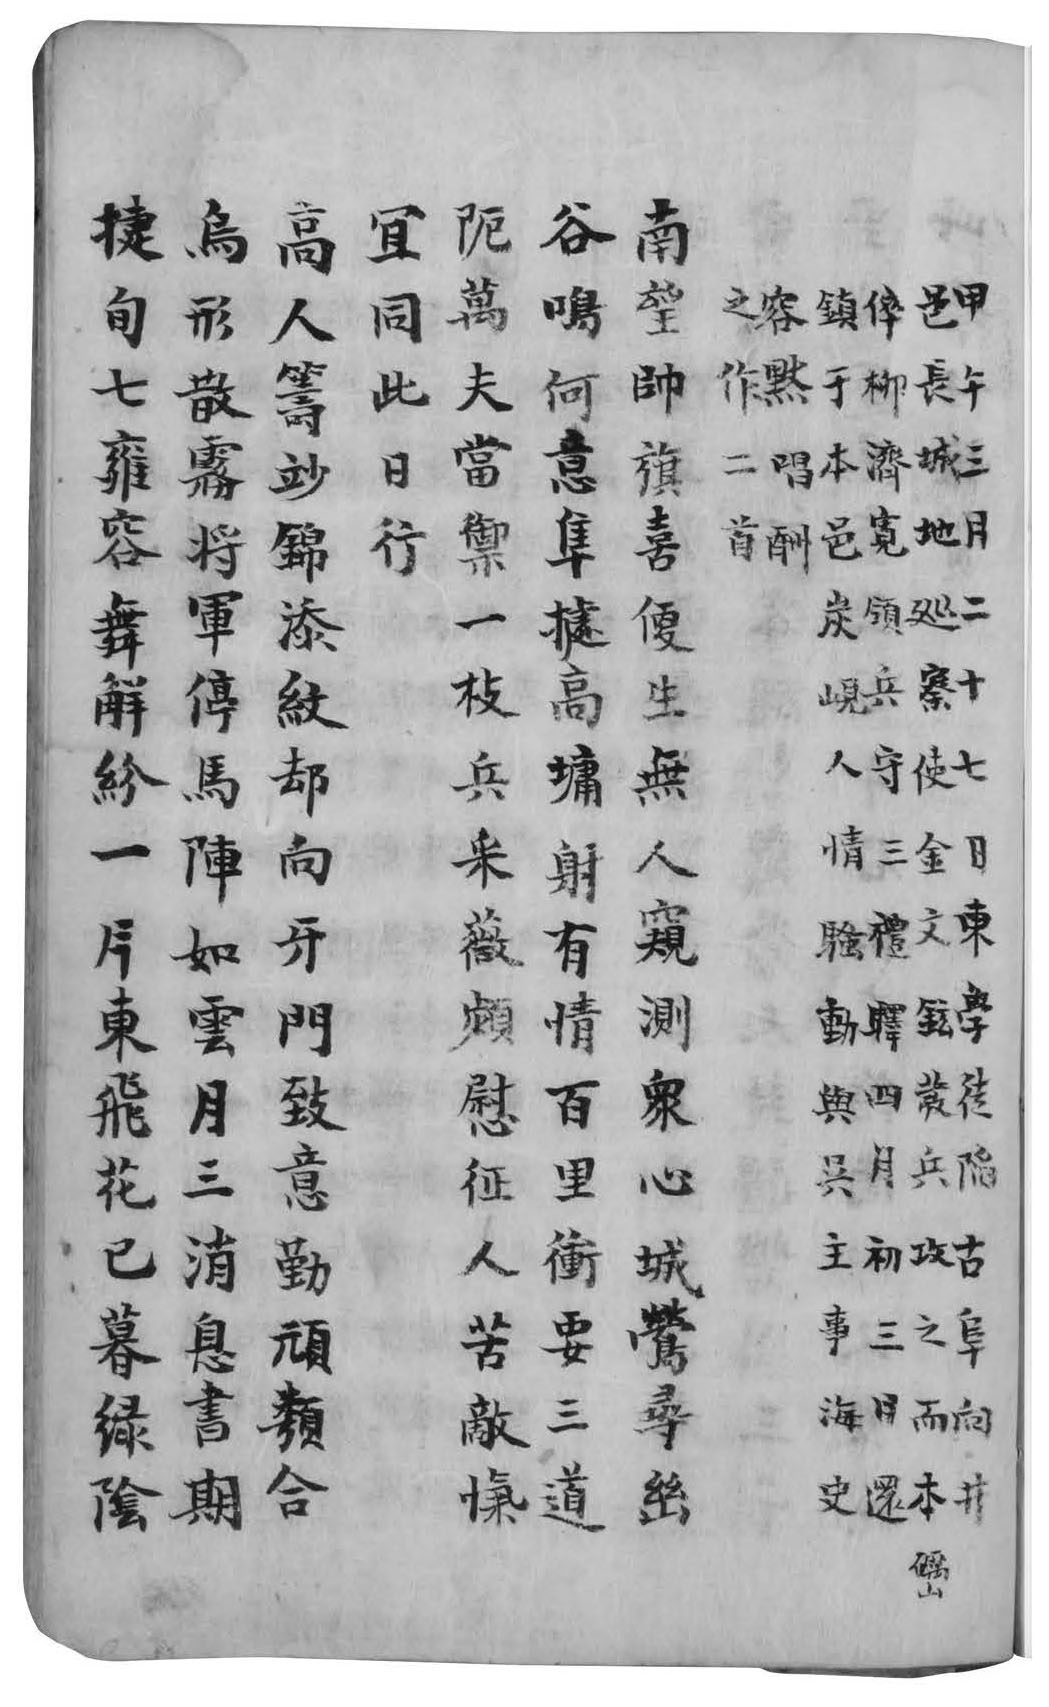 甲午三月二十七日東學徒陷古阜向井
邑長城地廵寨使金文鉉發兵攻之而本
倅柳濟寬領兵守三禮驛四月初三日還
鎮于本邑炭峴人情騷動與吳主事海史
容黙唱酬
之作二首
南望帥旗喜便生無人窺測衆心城鶯尋幽
谷鳴何意隼據高墉射有情百里衝要三道
阨萬夫當禦一枝兵采薇頗慰征人苦敵愾
宜同此日行
高人籌竗錦添紋却向牙門致意勤頑類合
烏形散霧將軍停馬陣如雲月三消息書期
捷旬七雍容舞解紛一片東飛花已暮綠陰
礪山